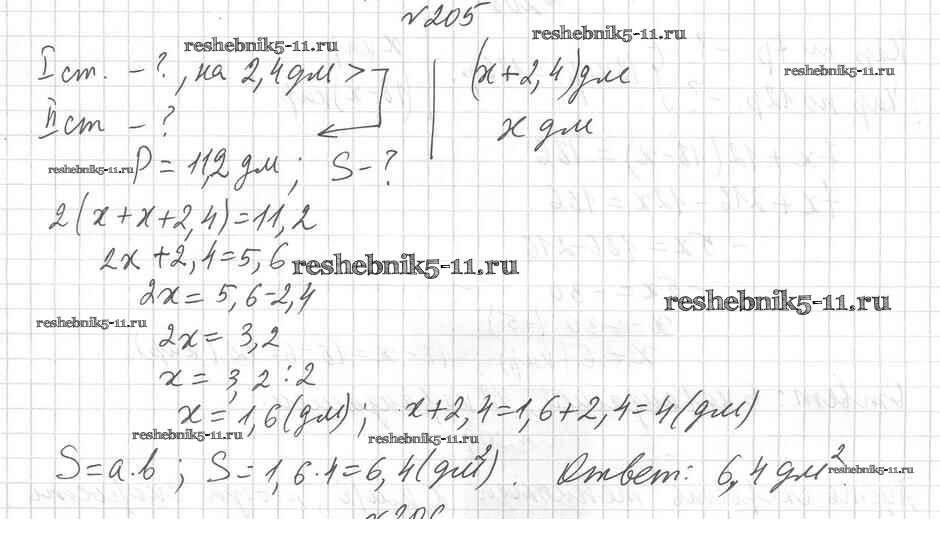 №205
I ст. - ?, на 2,4 дм > (x+2,4) дм
II ст - ? x дм
P = 11,2 дм; S - ?
2(x+x+2,4)=11,2
2x+2,4=5,6
2x=5,6-2,4
2x=3,2
x=3,2:2
x=1,6(дм); x+2,4=1,6+2,4=4(дм)
S=a·b; S=1,6·4=6,4(дм²). Ответ: 6,4 дм².
reshebnik5-11.ru
reshebnik5-11.ru
reshebnik5-11.ru
reshebnik5-11.ru
reshebnik5-11.ru
reshebnik5-11.ru
reshebnik5-11.ru
reshebnik5-11.ru
reshebnik5-11.ru
reshebnik5-11.ru